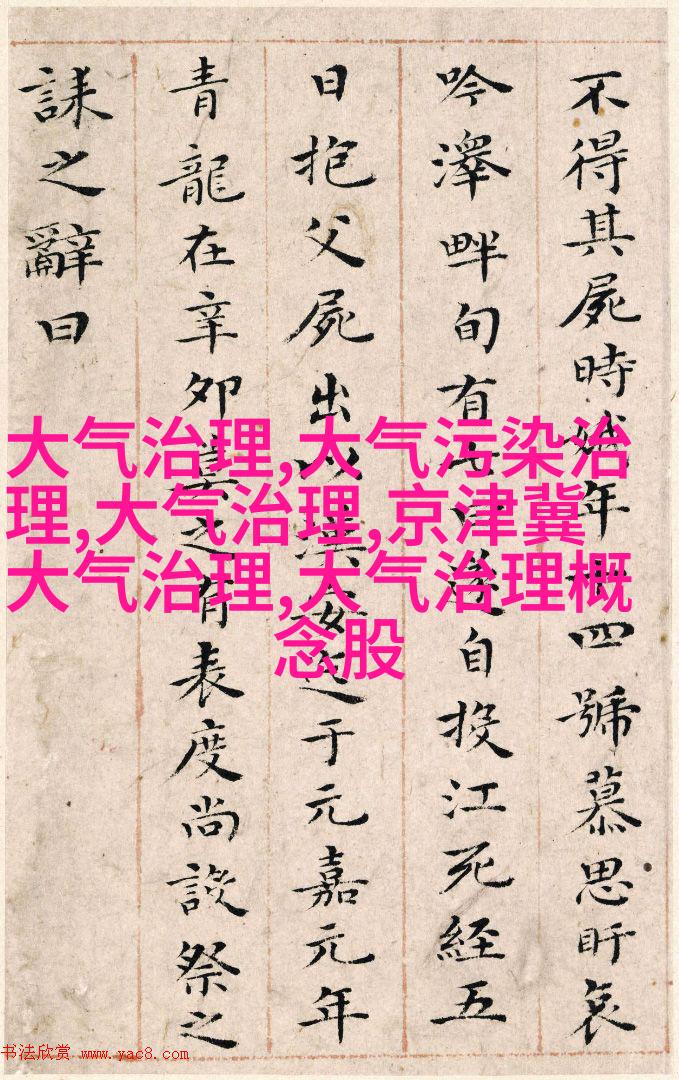 不得其屍時娥年十四號慕思盱哀
吟澤畔旬有七日遂自投江死經五
日抱父屍出以漢安迄于元嘉元年
青龍在辛夘莫之有表度尚設祭之
誄之辭曰
大气治理,大气污染治
理,大气治理,京津冀
大气治理,大气治理概
念股
书法欣赏 www.yac8.com